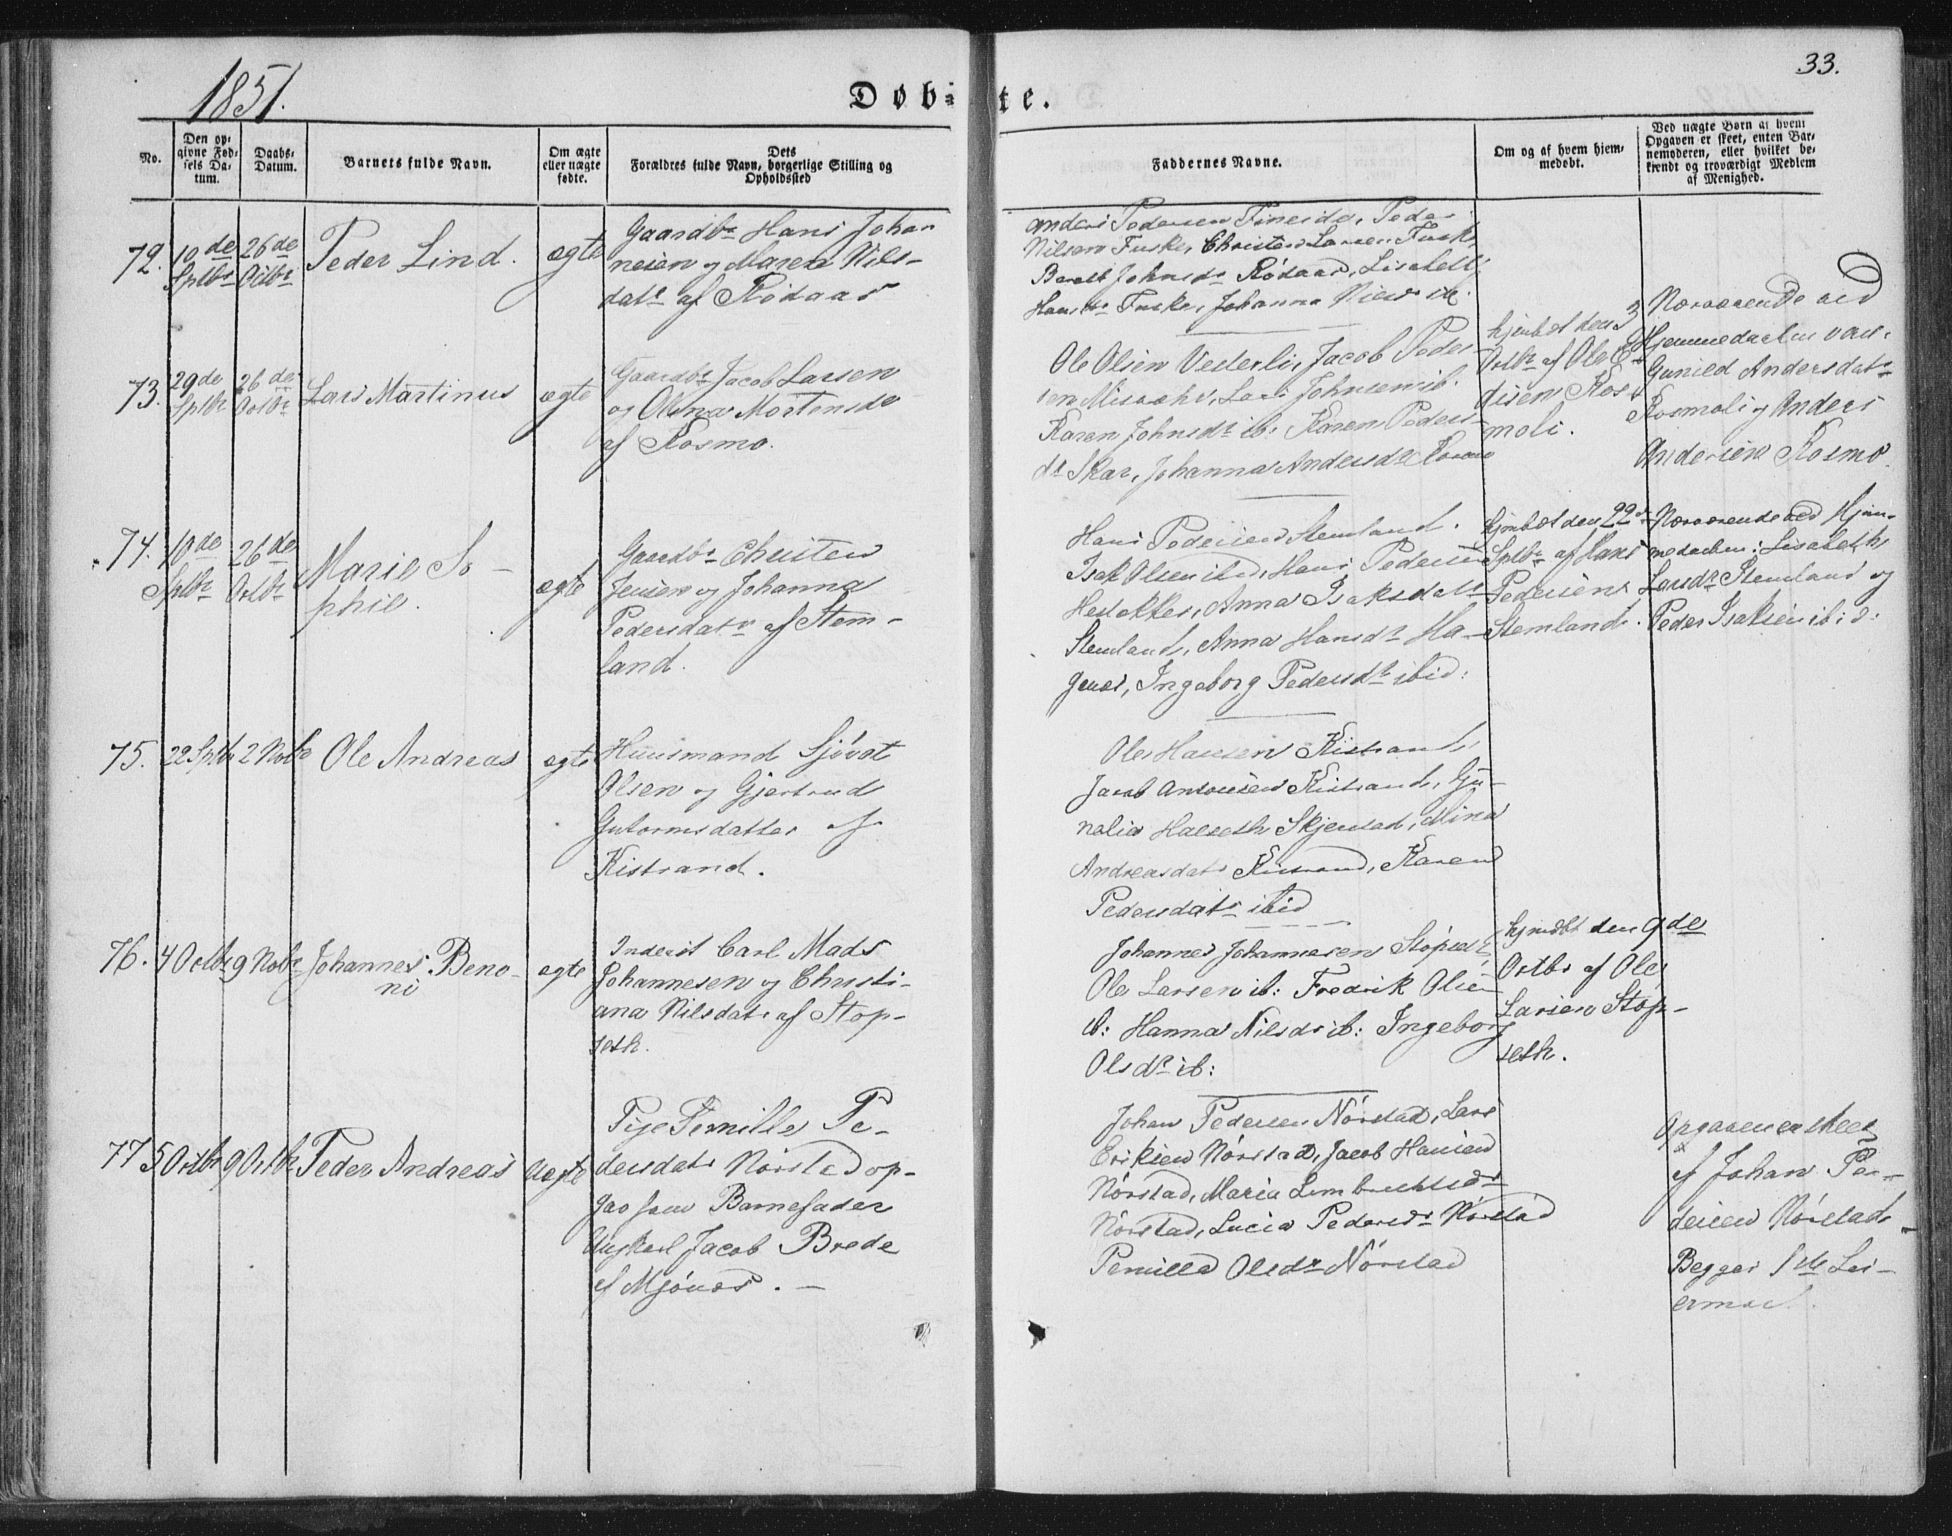 1851.
33.
Døb-
te.
No.
Den op-
givne Fød-
sels Da-
tum.
Daabs-
Datum.
Barnets fulde Navn.
Om ægte
eller uægte
fødte.
Dets
Forældres fulde Navn, borgerlige Stilling og
Opholdssted
Faddernes Navne.
Om og af hvem hjem-
medøbt.
Ved uægte Børn at hvem
Opgaven er skeet, enten Bar-
nemoderen, eller hvilket be-
kjendt og troværdigt Medlem
af Menighed.
72.
10de
Sptbr
26de
Octbr
Peder Lind.
ægte
Gaardbr Hans Johan
nesen og Maren Nils-
datr af Rödaas
Anders Pedersen Fineide, Peder
Nilsen Fuske, Christen Larsen Fuske
Bereth Johnsdr Rödaas, Lisabeth
Hansdr Fuske, Johanna
73.
29de
Sptbr
26de
Octbr
Lars Martinus
ægte
Gaardbr Jacob Larsen
og Olina Mortensdr
af Kosmo.
Ole Olsen Vederli, Jacob Peder-
sen Misvær, Lars Johnsen ib.
Karen Johnsdr ib: Karen Peders-
dr Skar, Johanna Andersdr Kosmo
hjmbt den 3
Octbr af Ole
Kos
moli.
Nærværende ved
Hjemmedaaben var:
Gunild Andersdatr
Kosmoli og Anders
Andersen Kosmo.
74.
10de
Sptbr
26de
Octbr
Marie So-
phie.
ægte
Gaardbr Christen
Jensen og Johanna
Pedersdatr af Stem-
land.
Hans Pedersen Stemland.
Isak Olsen ibid, Hans Pedersen
Anna Isaksdatr
Stemland, Anna Hansdr Ha-
genes, Ingeborg Pedersdr ibid:
hjmbt den 22de
Sptbr af Hans
Pedersen
Stemland.
Nærværende ved Hjem-
medaaben: Lisabeth
Larsdr Stemland og
Peder Isaksen ibid:
75.
22 Sptbr
2 Nobr
Ole Andreas
ægte
Huusmand Sjövat
Olsen og Gjertrud
Gutormsdatter af
Kistrand.
Ole Hansen Kistrand,
Jacob Antonisen Kistrand, Gu-
nelia Halseth Skjerstad, Mina
Andreasdatr Kistrand, Karen
Pedersdatr ibid
76.
4 Octbr
9 Nobr
Johannes Beno-
ni
ægte
Inderst Carl Mads
Johannesen og Christi-
ana Nilsdatr af Stop-
seth.
Johannes Johannesen Stöpseth
Ole Larsen ib: Fredrik Olsen
ib: Hanna Nilsdr ib: Ingeborg
Olsdr ib:
hjmdbt den 9de
Octbr af Ole
Larsen Stop-
seth.
77
5 Octbr
9 Octbr
Peder Andreas
Uægte
Pige Pernille Pe-
dersdatr Nörstad op-
gav som Barnefader
Ungkarl Jacob Brede
af Mjönes. -
Johan Pedersen Nörstad, Lars
Eriksen Nörstad, Jacob Hansen
Nörstad, Maria Lembrechtsdr
Nörstad, Lucia Pedersdr Nörstad
Pernilla Olsdr Nörstad
Opgaven er skeet
af Johan Pe-
dersen Nörstad
Begges 1ste Lei-
ermaal.